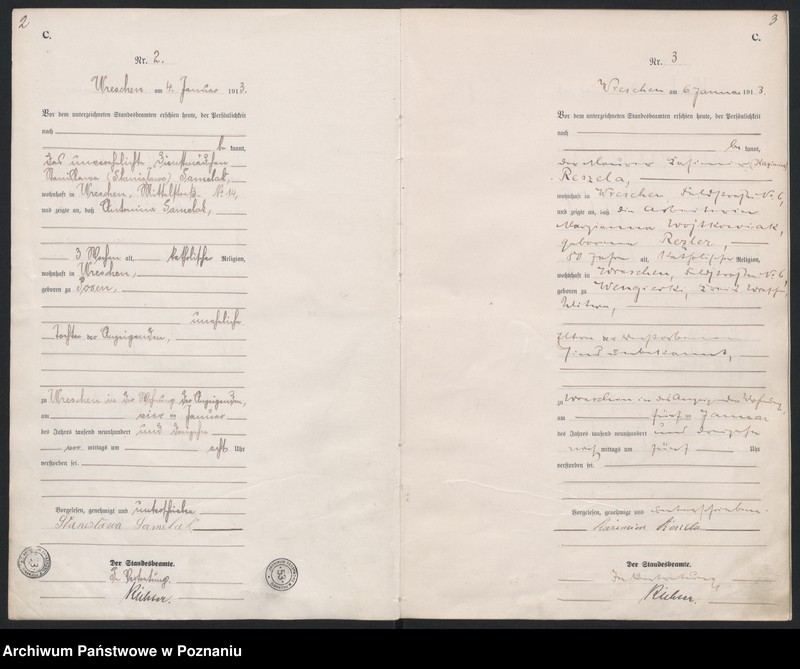 2
C.
Nr. 2.
Wreschen am 4. Januar 1913.
Vor dem unterzeichneten Standesbeamten erschien heute, der Persönlichkeit
nach
be kannt,
das unverehelichte Dienstmädchen
Stanislawa (Stanisława) Samelak,
wohnhaft in Wreschen, No 14,
und zeigte an, daß Antonina Samelak,
3 Wochen alt, katholischer Religion,
wohnhaft in Wreschen,
geboren zu Posen,
uneheliche
Tochter der Anzeigenden,
zu Wreschen in der Wohnung der Anzeigenden,
am vier ten Januar
des Jahres tausend neunhundert und dreizehn
vor mittags um acht Uhr
verstorben sei.
Vorgelesen, genehmigt und unterschrieben
Stanisława Samelak
Der Standesbeamte.
In Vertretung.
Richter.
3
C.
Nr. 3
Wreschen am 6 Januar 1913.
Vor dem unterzeichneten Standesbeamten erschien heute, der Persönlichkeit
nach
be kannt,
der Maurer Kasimir
Reszela,
wohnhaft in Wreschen Feldstraße No 6,
und zeigte an, daß die Arbeiterin
Maryanna Wojtkowiak,
geborene Rezler,
50 Jahre alt, katholischer Religion,
wohnhaft in Wreschen, Feldstraße No 6,
geboren zu Wengierki, Kreis
Witwe,
Eltern der Verstorbenen
sind unbekannt,
zu Wreschen in des Anzeigenden Wohnung,
am fünften Januar
des Jahres tausend neunhundert und dreizehn
nach mittags um fünf Uhr
verstorben sei.
Vorgelesen, genehmigt und unterschrieben.
Kazimierz Reszela
Der Standesbeamte.
In Vertretung,
Richter.
Archiwum Państwowe w Poznaniu